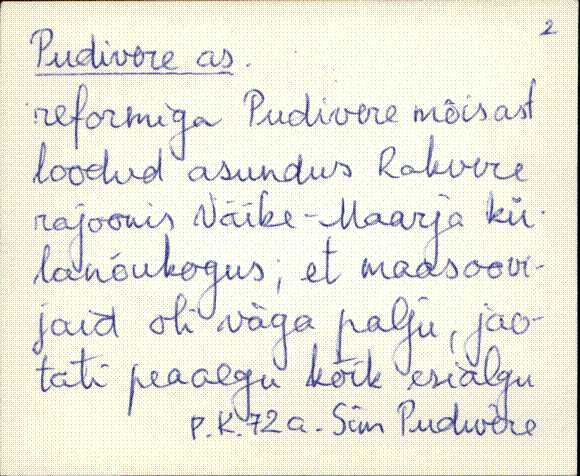 2
Pudivere as.
reformiga Pudivere mõisast
loodud asundus Rakvere
rajoonis Väike-Maarja kü-
lanõukogus; et maasoovi-
jaid oli väga palju, jao-
tati peaaegu kõik esialgu
P.K. 72 a. Sim Pudivere